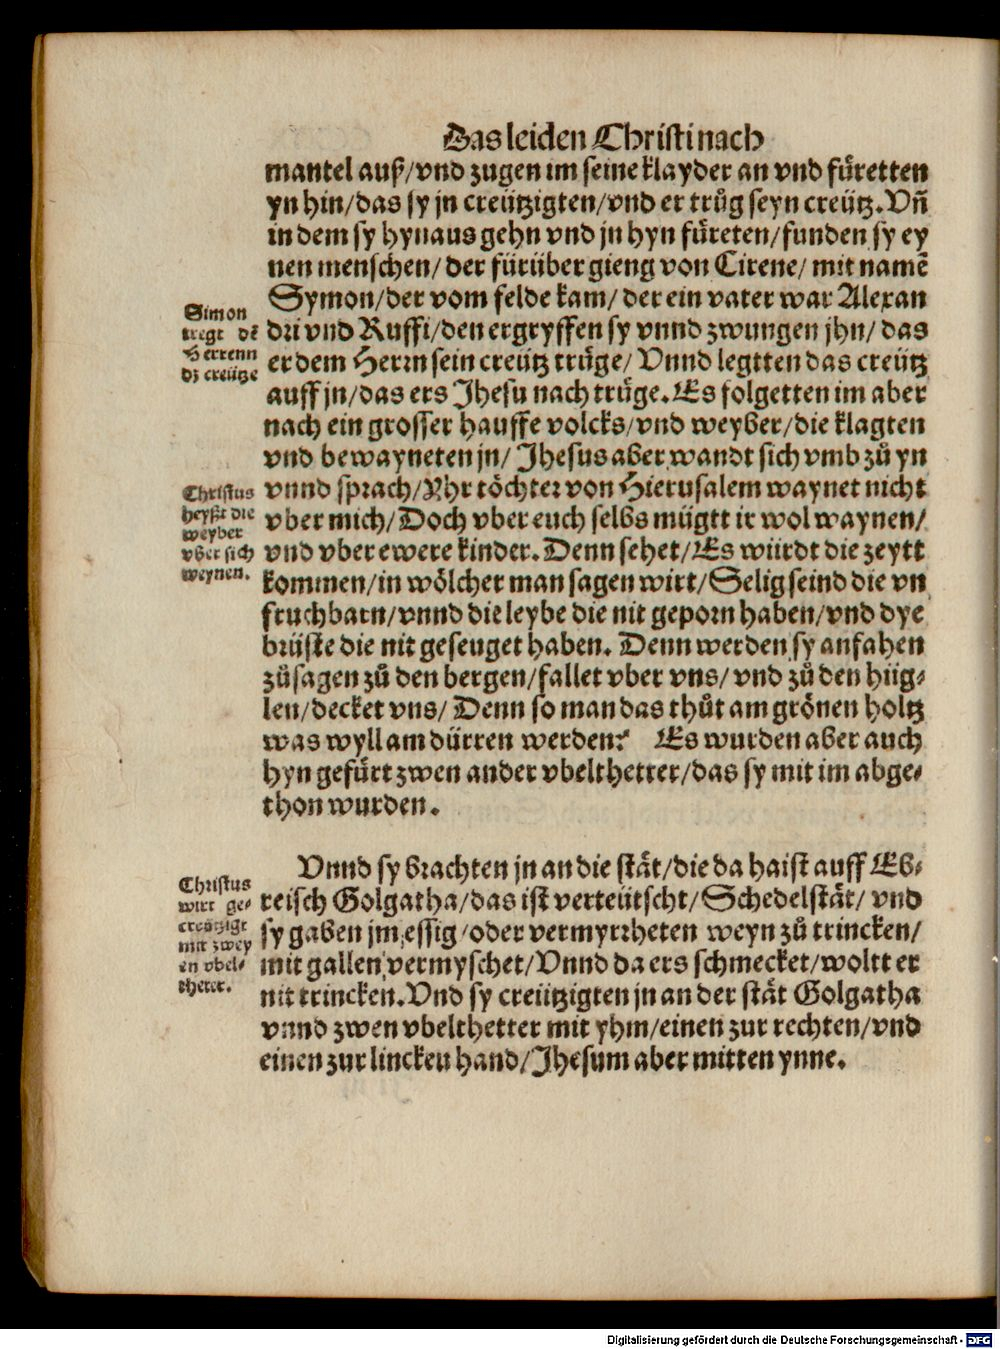 Das leiden Christi nach
mantel auß/vnd zugen im seine klayder an vnd fuͤretten
yn hin/das sy jn creützigten/vnd er truͦg seyn creütz. Vñ
in dem sy hynaus gehn vnd jn hyn fuͤreten/funden sy ey
nen menschen/ der fürüber gieng von Cirene/ mit namẽ
Symon/der vom felde kam/ der ein vater war Alexan
dri vnd Ruffi/den ergryffen sy vnnd zwungen jhn/ das
er dem Herrn sein creütz truͤge/ Vnnd legtten das creütz
auff jn/das ers Jhesu nach truͤge. Es folgetten im aber
nach ein grosser hauffe volcks/vnd weyber/die klagten
vnd bewayneten jn/ Jhesus aber wandt sich vmb zuͦ yn
vnnd sprach/Yhr toͤchter von Hierusalem waynet nicht
vber mich/Doch vber euch selbs mügtt ir wol waynen/
vnd vber ewere kinder. Denn sehet/Es würdt die zeytt
kommen/in woͤlcher man sagen wirt/Selig seind die vn
fruchbarn/vnnd die leybe die nit geporn haben/vnd dye
brüste die nit geseuget haben. Denn werden sy anfahen
zuͦsagen zuͦ den bergen/fallet vber vns/ vnd zuͦ den hüg⸗
len/decket vns/ Denn so man das thuͦt am groͤnen holtz
was wyll am dürren werden? Es wurden aber auch
hyn gefuͤrt zwen ander vbelthetter/das sy mit im abge⸗
thon wurden.
Vnnd sy brachten jn an die staͤt/die da haist auff Eb⸗
reisch Golgatha/das ist verteütscht/Schedelstaͤt/ vnd
sy gaben jm essig/oder vermyrrheten weyn zuͦ trincken/
mit gallen vermyschet/Vnnd da ers schmecket/woltt er
nit trincken. Vnd sy creützigten jn an der staͤt Golgatha
vnnd zwen vbelthetter mit yhm/einen zur rechten/vnd
einen zur lincken hand/Jhesum aber mitten ynne.
Simon
tregt dẽ
Herrenn
dz creütze
Christus
heyßt die
weyber
vber sich
weynen.
Christus
wirt ge⸗
creützigt
mit zwey
en vbel⸗
theter.
Digitalisierung gefördert durch die Deutsche Forschungsgemeinschaft - DFG